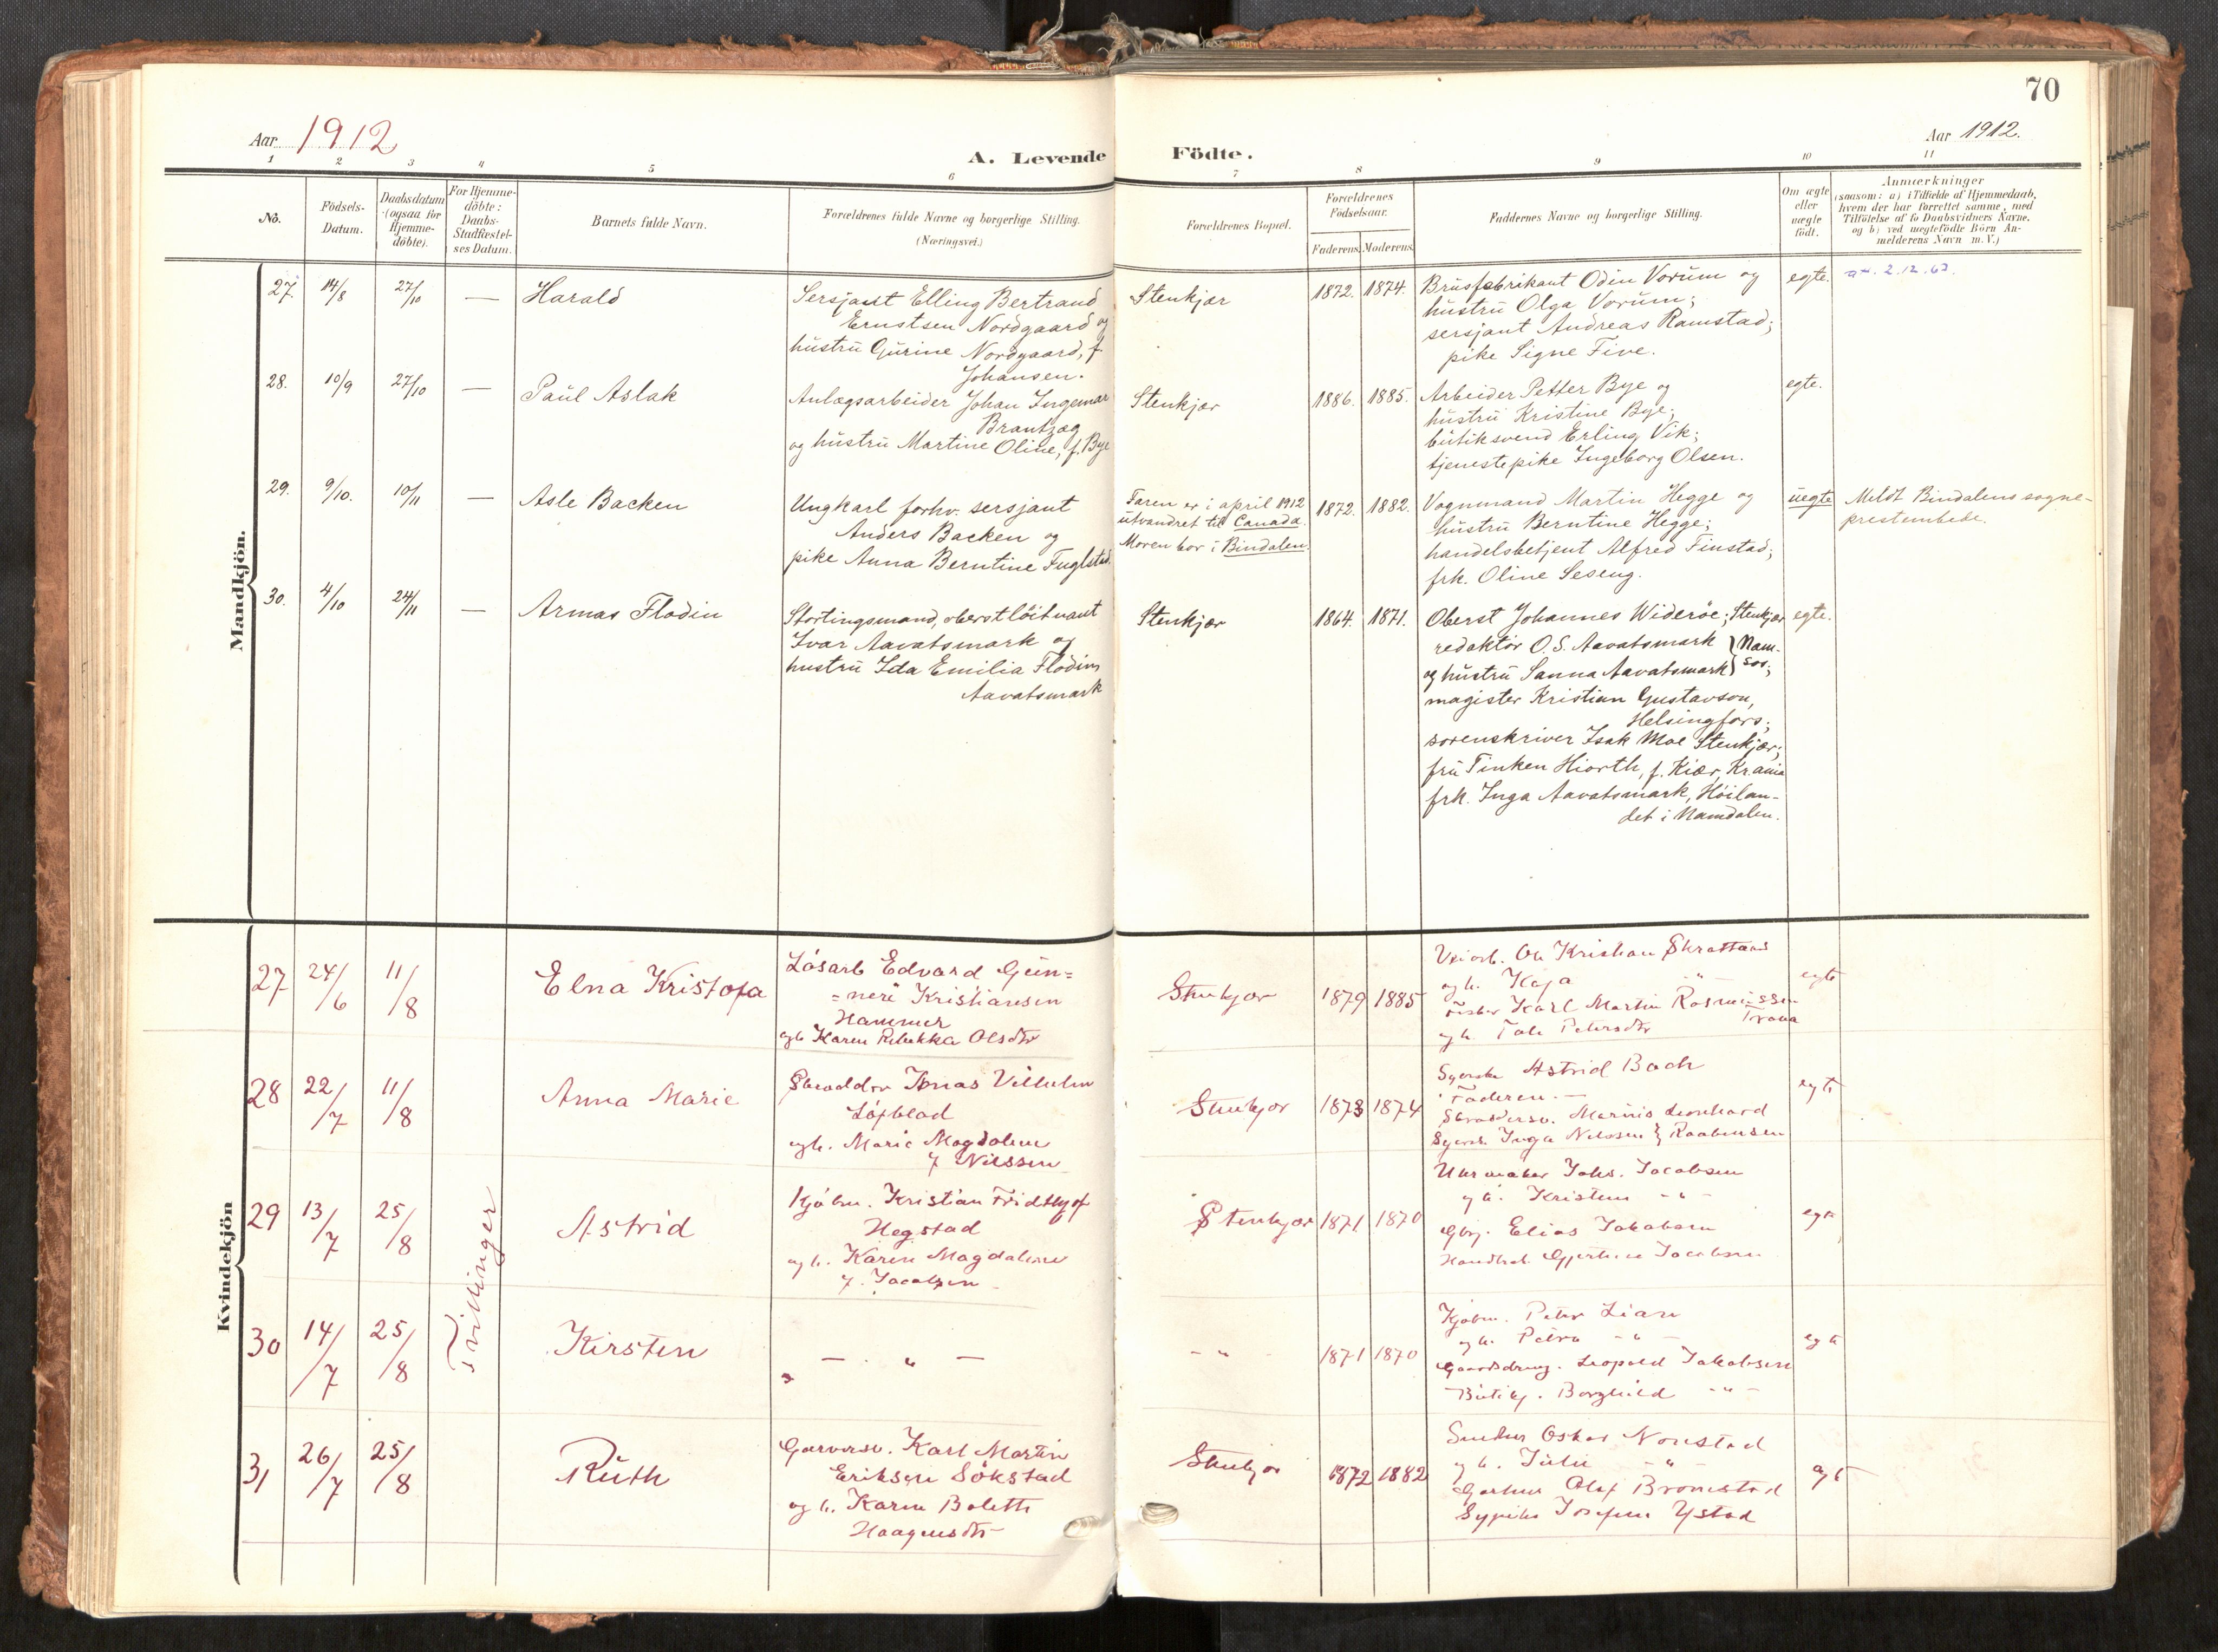 70
Aar 1912
Aar 1912.
A. Levende Födte.
1 2 3 4 5 6 7 8 9 10 11
No.
Födsels-
Datum.
Daabsdatum
(ogsaa for
Hjemme-
döbte).
For Hjemme-
döbte:
Daabs-
Stadfæstel-
ses Datum.
Barnets fulde Navn.
Forældrenes fulde Navne og borgerlige Stilling.
(Næringsvei.)
Forældrenes Bopæl.
Forældrenes
Födselsaar.
Faderens. Moderens.
Faddernes Navne og borgerlige Stilling.
Om ægte
eller
uægte
födt.
Anmærkninger
(saasom: a) i Tilfælde af Hjemmedaab,
hvem der har forrettet samme, med
Tilföielse af to Daabsvidners Navne.
og b) ved uægtefödte Börn An-
melderens Navn m. V.)
Mandkjön.
27. 14/8 27/10 — Harald
Sersjant Elling Bertrand
Ernstsen Nordgaard og
hustru Gurine Nordgaard, f.
Johansen.
Stenkjær 1872. 1874.
Brusfabrikant Odin Vorum og
hustru Olga Vorum;
sersjant Andreas Ramstad;
pike Signe Five.
egte.
2.12.63.
28. 10/9 27/10 — Paul Aslak
Anlægsarbeider Johan Ingemar
Brantzæg
og hustru Martine Oline, f. Bye
Stenkjær 1886. 1885.
Arbeider Petter Bye og
hustru Kristine Bye;
butiksvend Erling Vik;
tjenestepike Ingeborg Olsen.
egte.
29. 9/10. 10/11 — Asle Backen
Ungkarl forhv. sersjant
Anders Backen og
pike Anna Berntine Fuglstad.
Faren er i april 1912
utvandret til Canada.
Moren bor i Bindalen.
1872. 1882.
Vognmand Martin Hegge og
hustru Berntine Hegge;
handelsbetjent Alfred Finstad;
frk. Oline Seseng.
uegte
Meldt Bindalens sogne-
prestembede.
30. 4/10 24/11 — Armas Flodin
Stortingsmand, oberstløitnant
Ivar Aavatsmark og
hustru Ida Emilia Flodin
Aavatsmark
Stenkjær 1864. 1871.
Oberst Johannes Widerøe; Stenkjær
redaktør O. S. Aavatsmark } Nam-
og hustru Sanna Aavatsmark } sos;
magister Kristian Gustavson,
Helsingfors;
sorenskriver Isak Moe Stenkjær;
fru Tinken Hiorth, f. Kiær, Kr.ania
frk. Inga Aavatsmark, Høilan-
det i Namdalen.
egte.
Kvindekjön
27 24/6 11/8 Elna Kristofa
Løsarb Edvard Gun=
=neri Kristiansen
Hammer
og h Karen Rebekka Olsdtr
Stenkjær 1879 1885
Veiarb. Ole Kristian Skrattaas
og h. Kaja — " —
Karl Martin Rasmussen
Trana
og h. Petersdtr
egte
28 22/7 11/8 Anna Marie
Skrædder Jonas Vilhelm
Løfblad
og h. Marie Magdalene
f Nilssen
Stenkjær 1873 1874
Syerske Astrid Bach
Faderen. —
Skræddersv. Marius Leonhard
Syersk. Inga Nilssen } Raabensen
egte
Tvillinger
29 13/7 25/8 Astrid
Kjøbm. Kristian Fridthjof
Hegstad
og h. Karen Magdalene
f. Jacobsen
Stenkjær 1871 1870
Uhrmaker Johs. Jacobsen
og h. Kristine - " -
Gbr. Elias Jakobsen
Gjertine Jacobsen
egte
30 14/7 25/8 Kirsten
— " —
- " -
1871 1870
Kjøbm. Peter Lian
og h. Petra - " -
Gaardsdreng. Leopold Jakobsen
Butikj. Borghild - " -
egte
31 26/7 25/8 Ruth
Garversv. Karl Martin
Eriksen Sökstad
og h. Karen Bolette
Haagensdtr
Stenkjær 1872 1882
Oskar Nonstad
og h. Julie - " -
Olaf Bromstad
Sypike Josefine Ystad
egte